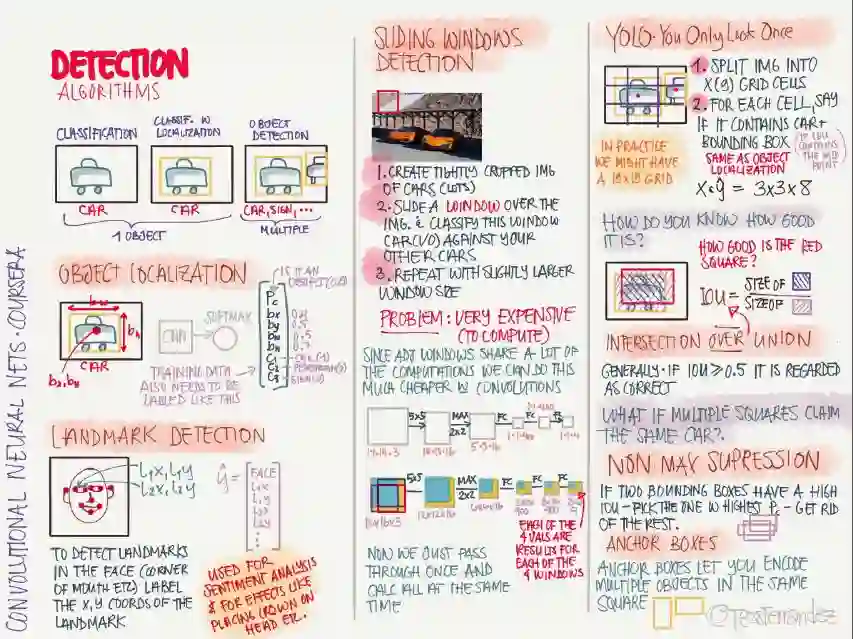 CONVOLUTIONAL NEURAL NETS · COURSERA
DETECTION
ALGORITHMS
CLASSIFICATION
CLASSIF. W
LOCALIZATION
OBJECT
DETECTION
CAR
CAR
CAR, SIGN, ...
1 OBJECT
MULTIPLE
OBJECT LOCALIZATION
bw
bh
CAR
bx, by
SOFTMAX
TRAINING DATA
ALSO NEEDS TO BE
LABLED LIKE THIS
IS IT AN
Pc
bx
by
bh
bw
C1
C2
C3
LANDMARK DETECTION
L1X, L1Y
L2X, L2Y
ŷ =
FACE
L1X
L1Y
L2X
L2Y
TO DETECT LANDMARKS
IN THE FACE (CORNER
OF MOUTH ETC) LABEL
THE X, Y COORDS OF THE
LANDMARK
USED FOR
SENTIMENT ANALYSIS
& FOR EFFECTS LIKE
PLACING CROWN ON
HEAD ER.
SLIDING WINDOWS
DETECTION
1. CREATE TIGHTLY CROPPED IMG
OF CARS
2. SLIDE A WINDOW OVER THE
IMG. & CLASSIFY THIS WINDOW
CAR(1/0) AGAINST YOUR
OTHER CARS
3. REPEAT WITH SLIGHTLY LARGER
WINDOW SIZE
PROBLEM: VERY EXPENSIVE
(TO COMPUTE)
SINCE ADJ WINDOWS SHARE A LOT OF
THE COMPUTATIONS WE CAN DO THIS
MUCH CHEAPER W CONVOLUTIONS
5x5
MAX
2x2
FC
FC
5x5
MAX
2x2
FC
FC
FC
EACH OF THE
4 VALS ARE
RESULTS FOR
EACH OF THE
4 WINDOWS
NOW WE JUST PASS
THROUGH ONCE AND
CALC ALL AT THE SAME
TIME
YOLO · You Only Look Once
1. SPLIT IMG INTO
X(9) GRID CELLS
2. FOR EACH CELL, SAY
IF IT CONTAINS CAR+
BOUNDING BOX
(IF IOU
CONTAINS
THE MID
POINT)
SAME AS OBJECT
LOCALIZATION
IN PRACTICE
WE MIGHT HAVE
A 19x19 GRID
X&ŷ = 3x3x8
HOW DO YOU KNOW HOW GOOD
IT IS?
HOW GOOD IS THE RED
SQUARE?
IOU =
SIZE OF
SIZE OF
INTERSECTION OVER UNION
GENERALLY · IF IOU ≥ 0.5 IT IS REGARDED
AS CORRECT
WHAT IF MULTIPLE SQUARES CLAIM
THE SAME CAR?
NON MAX SUPRESSION
IF TWO BOUNDING BOXES HAVE A HIGH
IOU - PICK THE ONE W HIGHEST Pc - GET RID
OF THE REST.
ANCHOR BOXES
ANCHOR BOXES LET YOU ENCODE
MULTIPLE OBJECTS IN THE SAME
SQUARE
@TessFerrandez